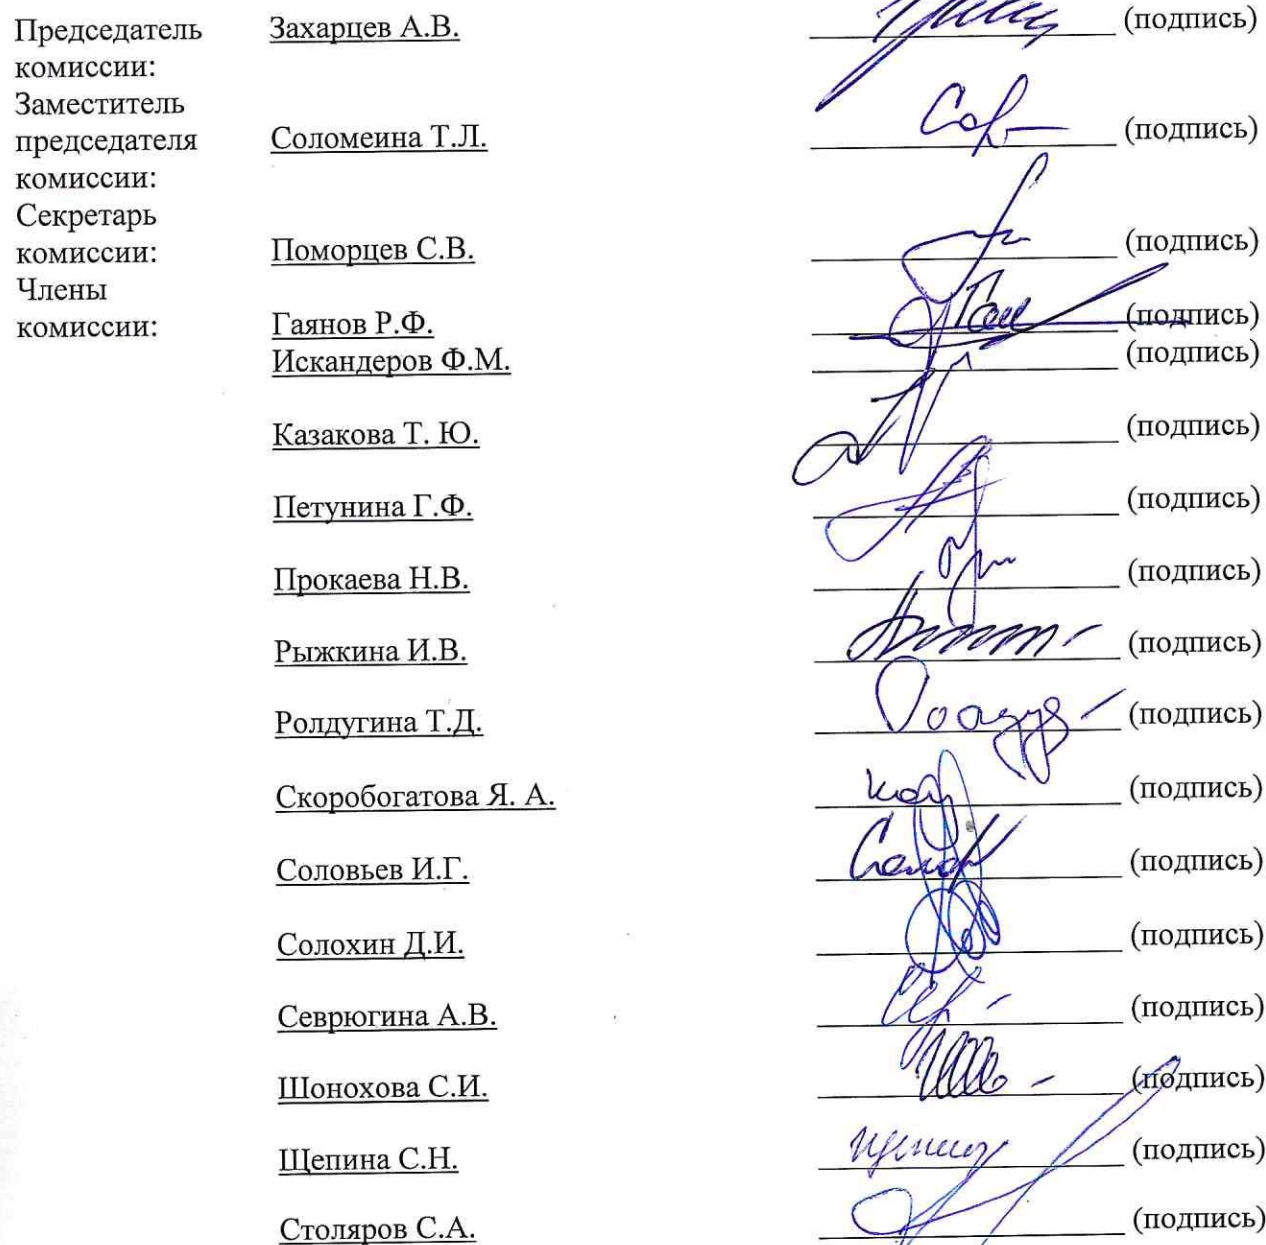 Председатель Захарцев А.В. (подпись)
комиссии:
Заместитель
председателя Соломеина Т.Л. (подпись)
комиссии:
Секретарь
комиссии: Поморцев С.В. (подпись)
Члены
комиссии: Гаянов Р.Ф. (подпись)
Искандеров Ф.М. (подпись)
Казакова Т. Ю. (подпись)
Петунина Г.Ф. (подпись)
Прокаева Н.В. (подпись)
Рыжкина И.В. (подпись)
Ролдугина Т.Д. (подпись)
Скоробогатова Я. А. (подпись)
Соловьев И.Г. (подпись)
Солохин Д.И. (подпись)
Севрюгина А.В. (подпись)
Шонохова С.И. (подпись)
Щепина С.Н. (подпись)
Столяров С.А. (подпись)